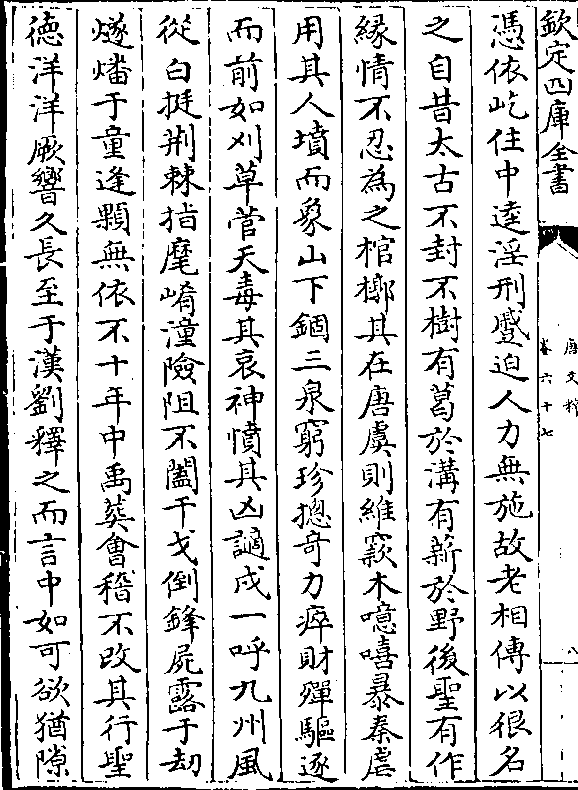 欽定四庫全書
唐文粹
卷六十七
八
憑依屹住中逵淫刑蹙迫人力無施故老相傳以很名
之自昔太古不封不樹有葛於溝有薪於野後聖有作
緣情不忍為之棺槨其在唐虞則維窾木噫嘻暴秦虐
用其人墳而象山下錮三泉窮珍摠奇力瘁財殫驅逐
而前如刈草菅天毒其哀神憤其凶謫戍一呼九州風
從白挺荆棘指麾崤潼險阻不闔干戈倒鋒屍露于劫
燧燔于童逢顆無依不十年中禹葬會稽不改其行聖
徳洋洋厥響久長至于漢劉釋之而言中如可欲猶隙